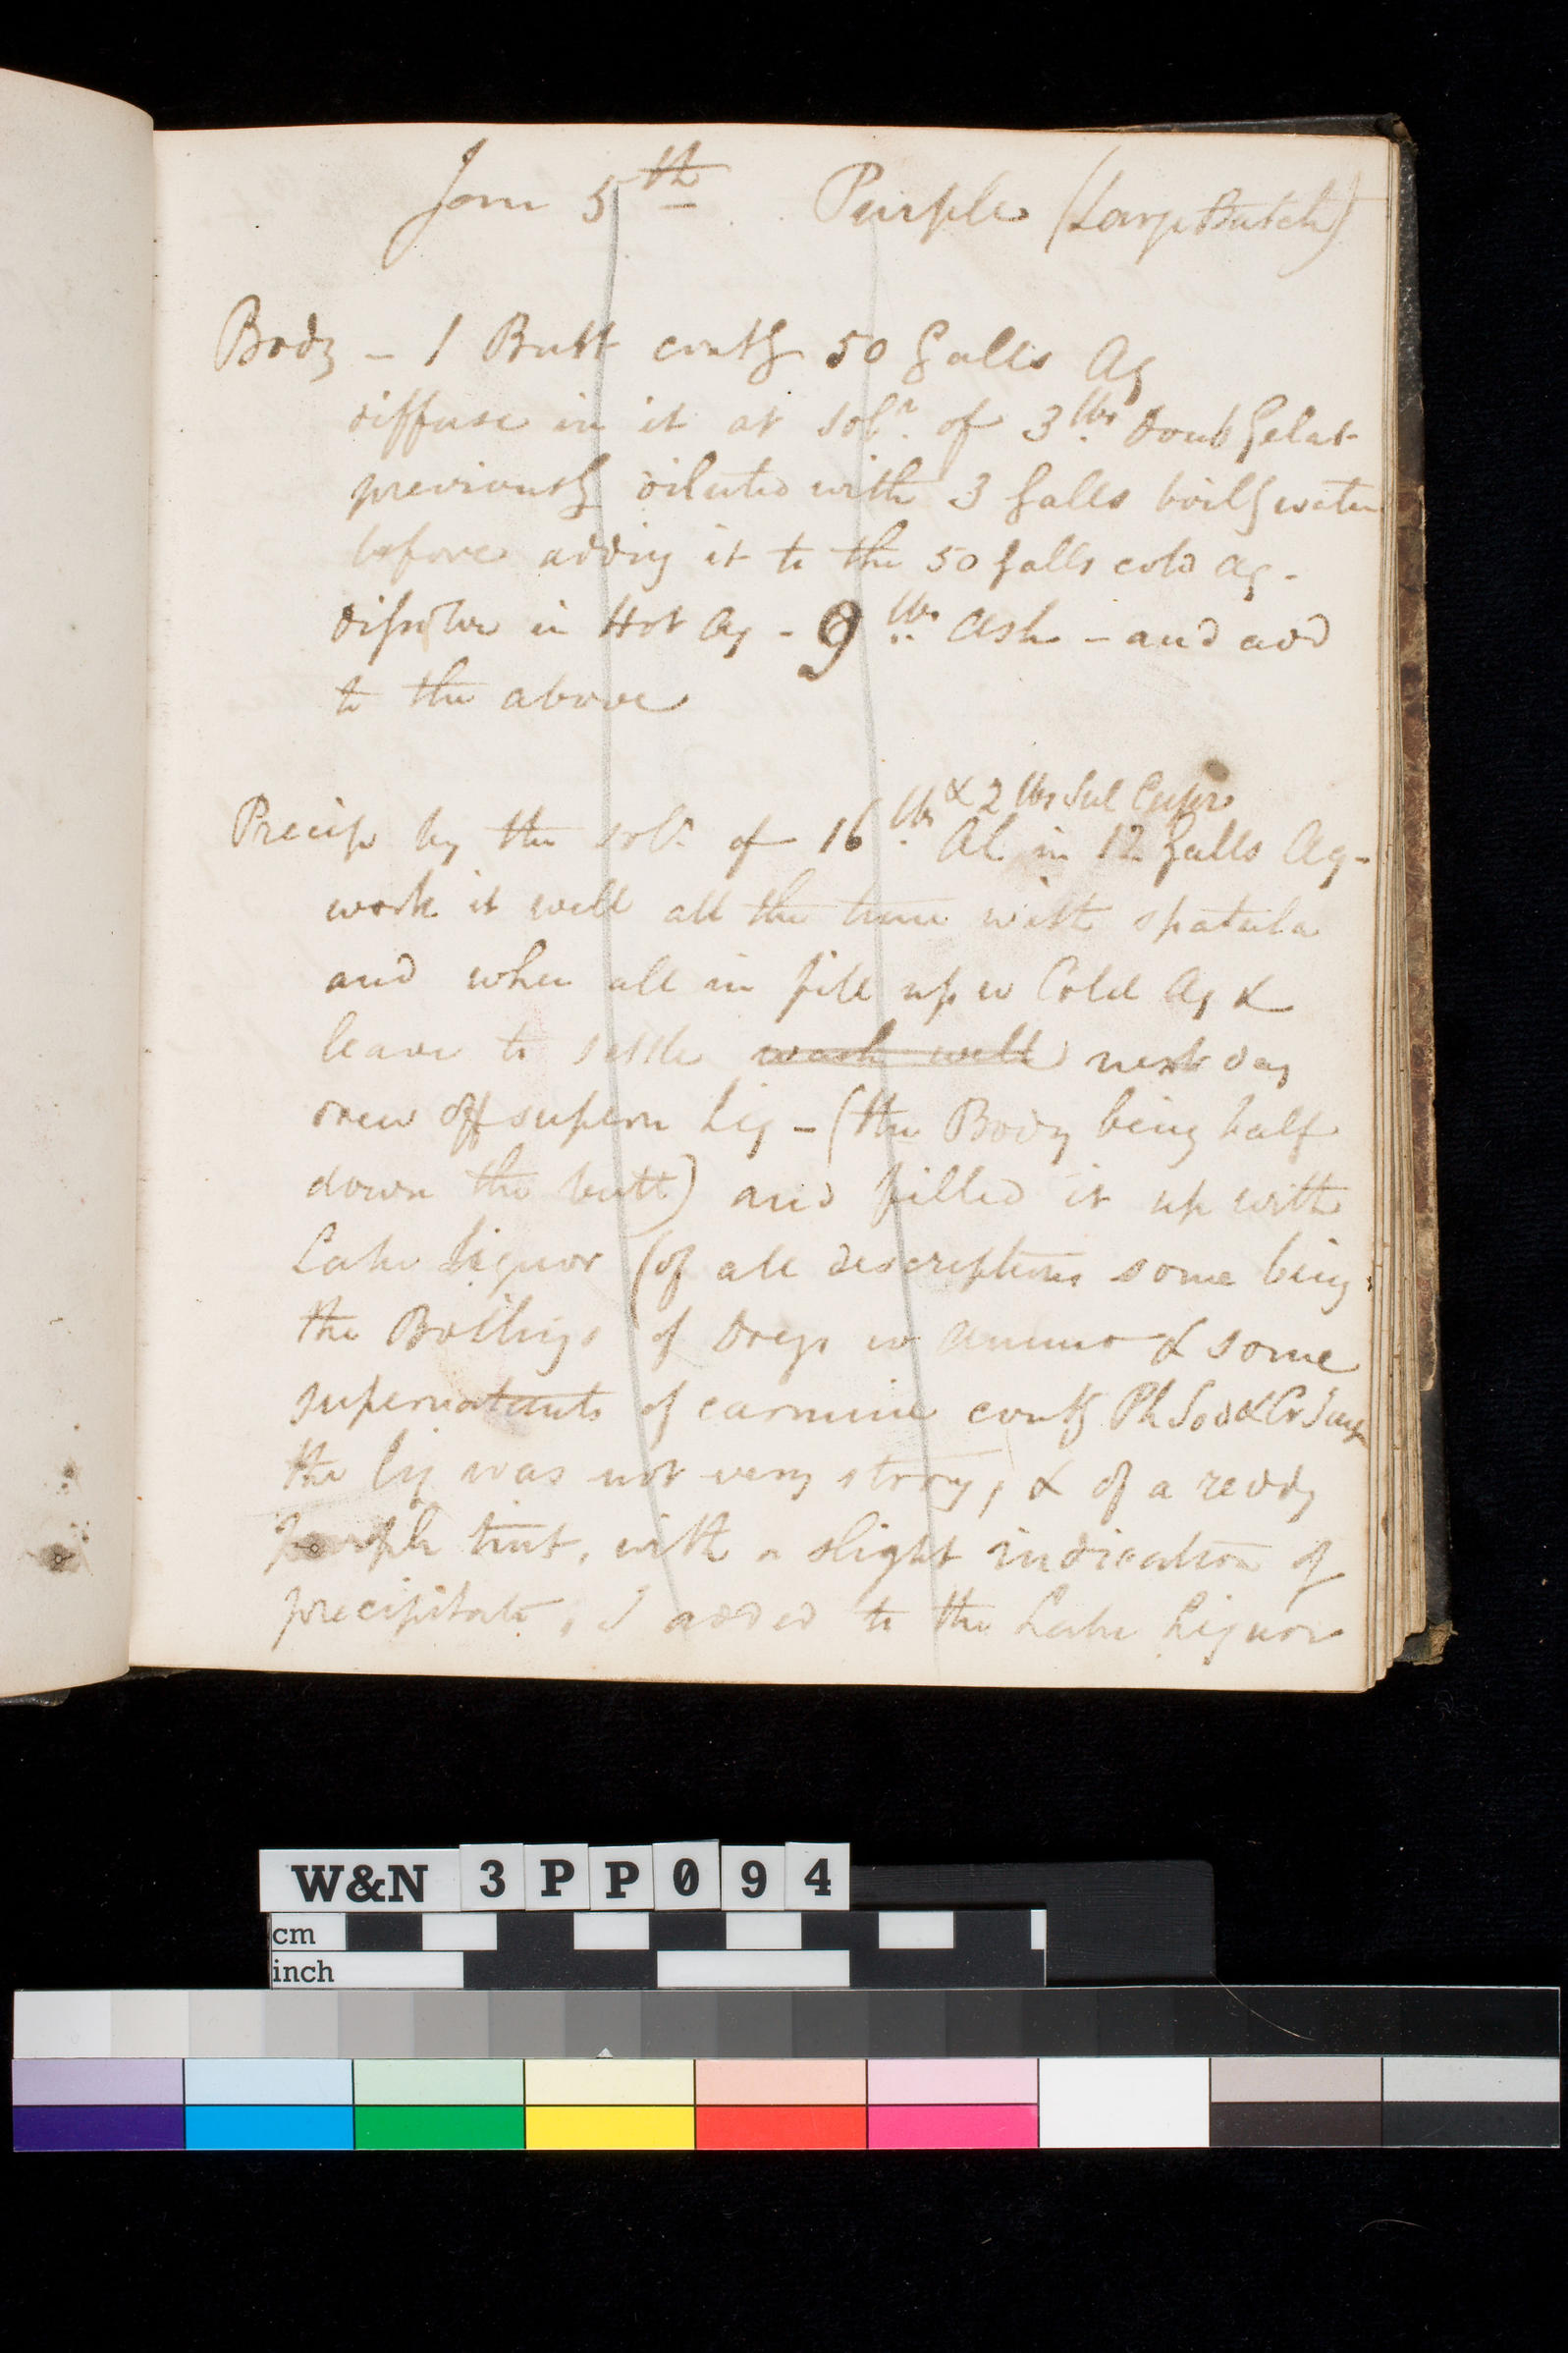 Jan 5th Purple (Large Batch)
Body - 1 Butt contg 50 Galls Aq
diffuse in it at soln. of 3 lbs Doub Gelat
previously diluted with 3 Galls boilg water
before adding it to the 50 Galls cold Aq -
dissolve in Hot Aq - 9 lbs Ash - and add
to the above
& 2 lbs Sul Cupr
Precip by the soln of 16 lbs Al in 12 Galls Aq -
work it well all the time with spatula
and when all in fill up w Cold Aq &
leave to settle wash well next day
drew off supern Liq - (the Body being half
down the butt) and filled it up with
Lake Liquor (of all descriptions some being
the Boilings of Dregs w Ammo & some
supernatants of carmine contg Ph Sod & Cr
the liq was not very strong, & of a reddy
purple tint, with a slight indication of
precipitate, I added to the Lake Liquor
W&N 3PP094
cm
inch